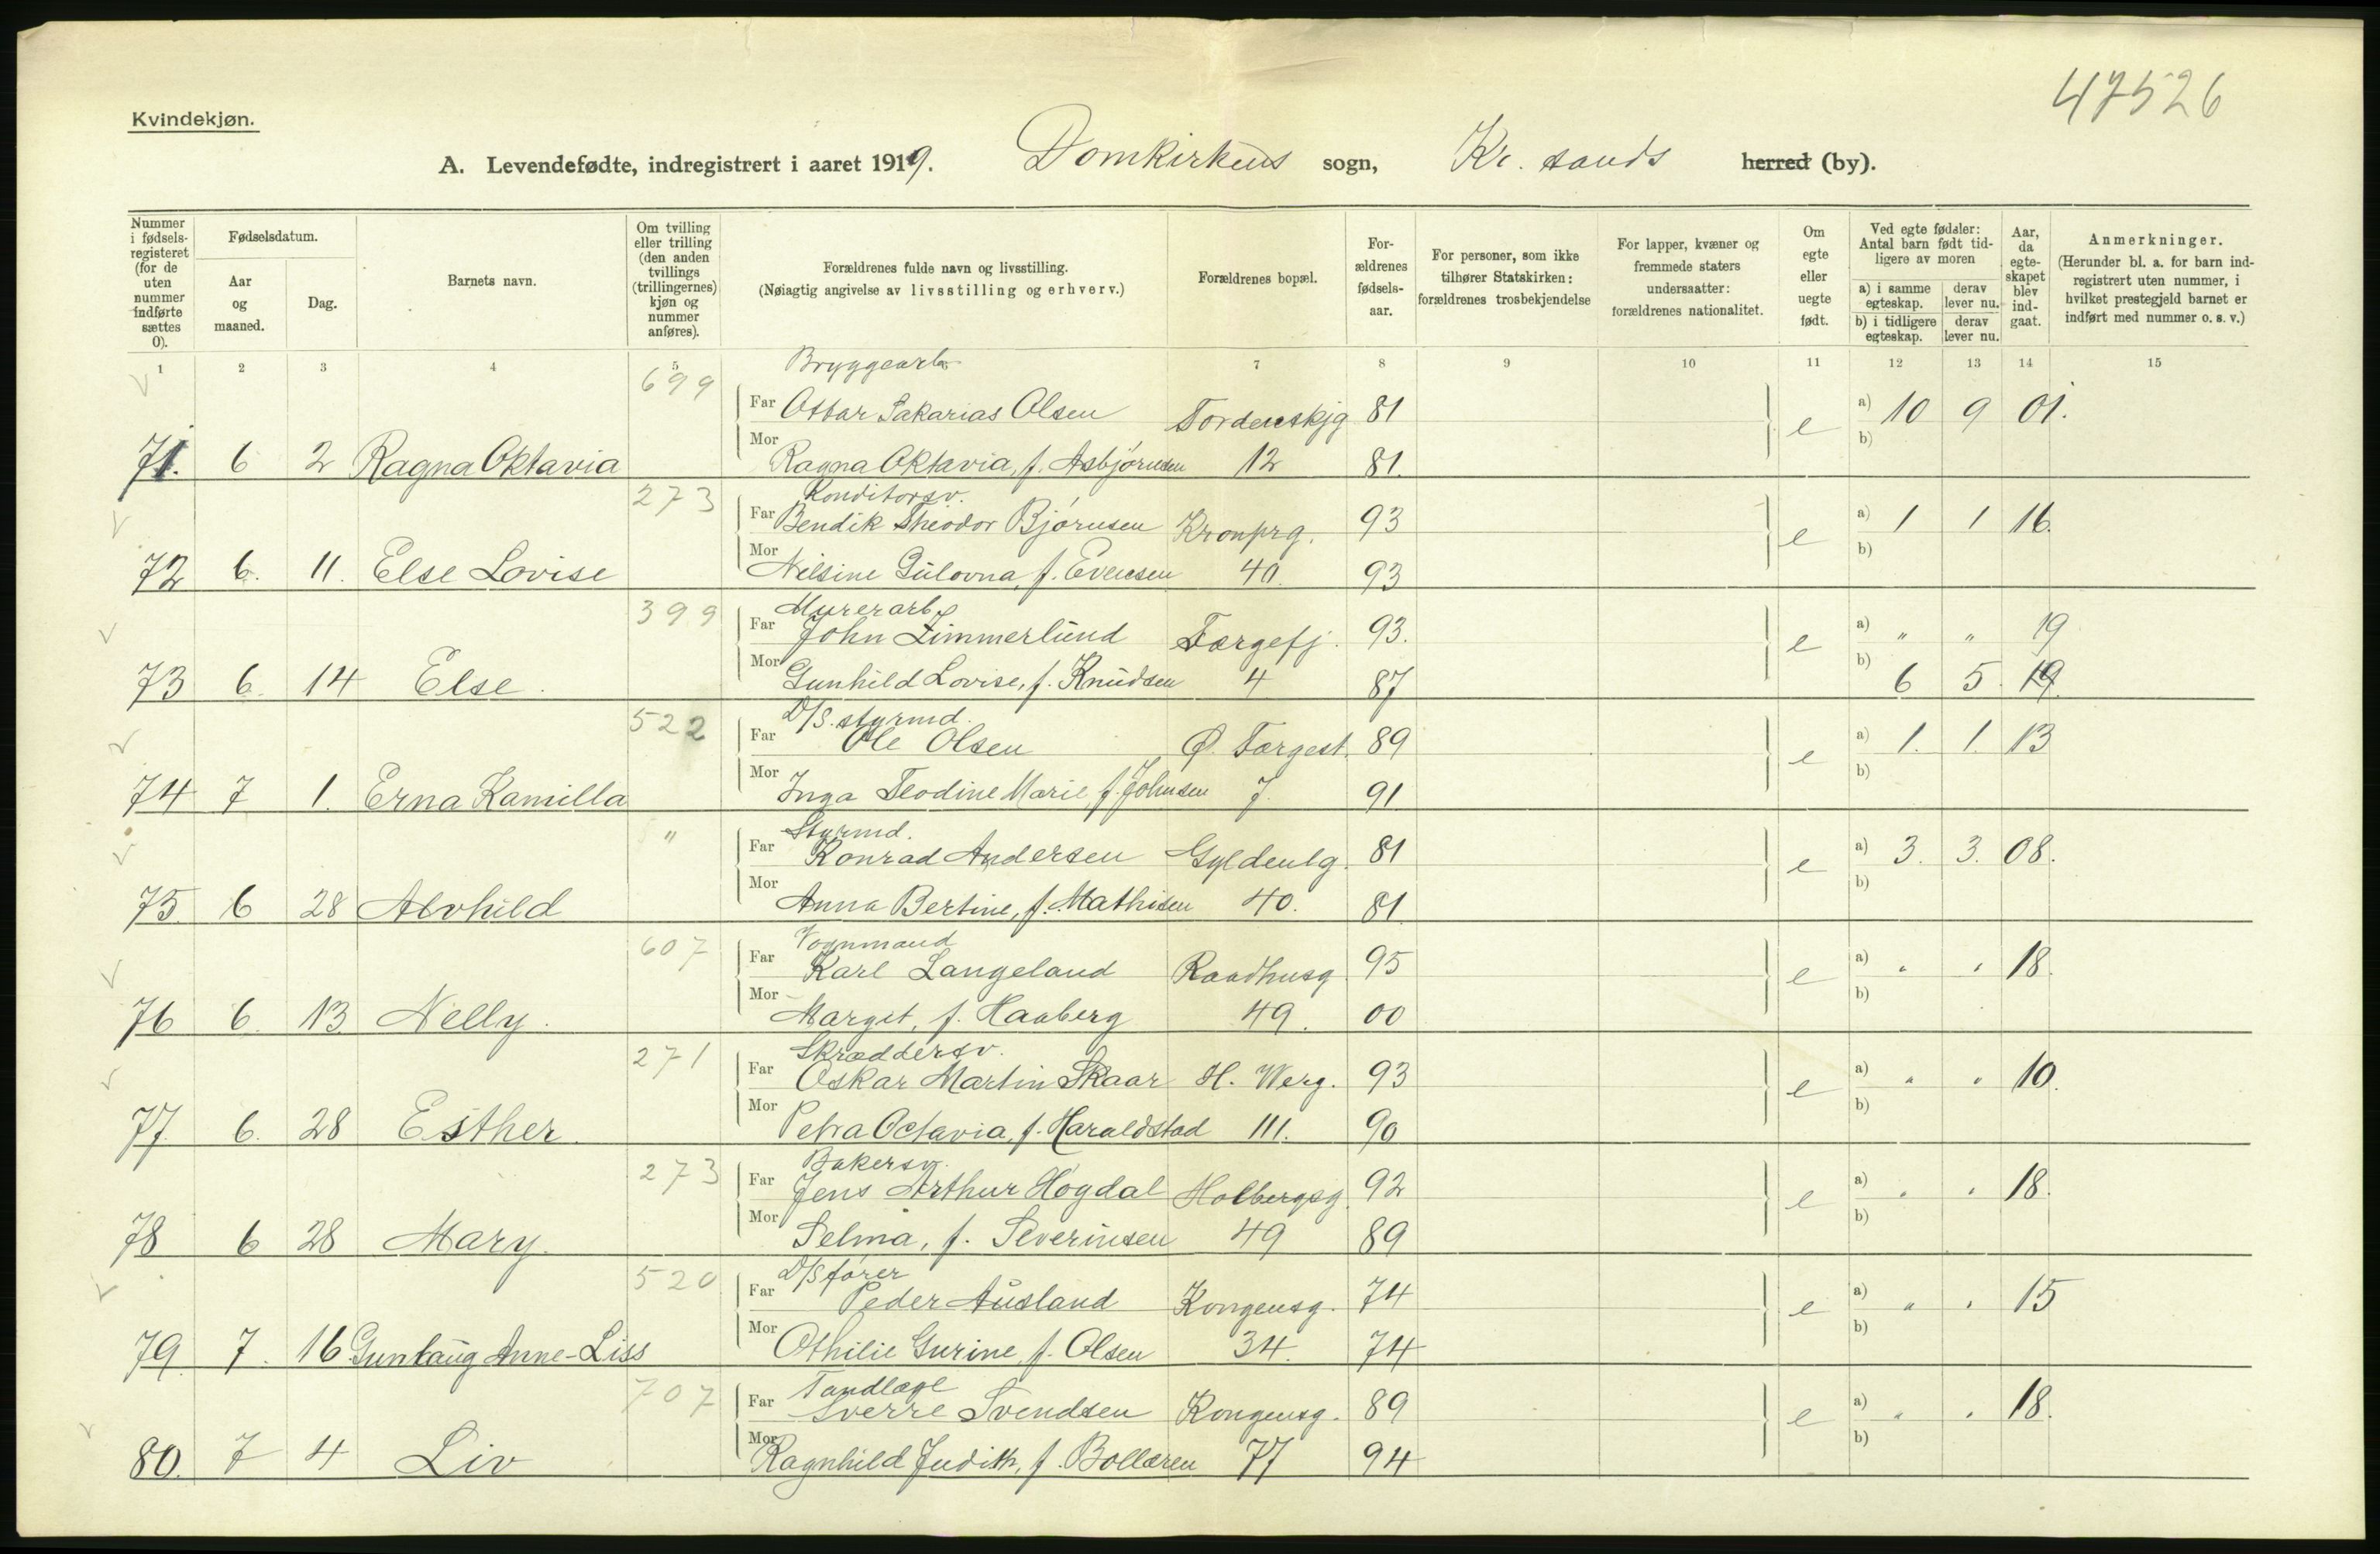 47526
Kvindekjøn.
A. Levendefødte, indregistrert i aaret 1919. Domkirkens sogn, Kr. sands herred (by).
Nummer i fødsels-registeret (for de uten nummer indførte sættes 0).
Fødselsdatum.
Aar og maaned.
Dag.
Barnets navn.
Om tvilling eller trilling (den anden tvillings (trillingernes) kjøn og nummer anføres).
Forældrenes fulde navn og livsstilling.
(Nøiagtig angivelse av livsstilling og erhverv.)
Forældrenes bopæl.
For-ældrenes fødsels-aar.
For personer, som ikke tilhører Statskirken: forældrenes trosbekjendelse
For lapper, kvæner og fremmede staters undersaatter: forældrenes nationalitet.
Om egte eller uegte født.
Ved egte fødsler: Antal barn født tid-ligere av moren
a) i samme egteskap. derav lever nu.
b) i tidligere egteskap. derav lever nu.
Aar, da egte-skapet blev ind-gaat.
Anmerkninger.
(Herunder bl. a. for barn ind-registrert uten nummer, i hvilket prestegjeld barnet er indført med nummer o. s. v.)
1 2 3 4 5 7 8 9 10 11 12 13 14 15
699 Bryggearb.
Far Ottar Sakarias Olsen Tordenskjg 81 e a) 10 9 01.
71. 6 2 Ragna Oktavia Mor Ragna Oktavia, f. Asbjørnsen 12 81. b)
273 Konditorsv.
Far Bendik Theodor Bjørnsen Kronprg. 93 e a) 1 1 16.
72 6. 11. Else Lovise Mor Nilsine Gulovna, f. Evensen 40. 93 b)
399 Murerarb.
Far John Zimmerlund Færgefj. 93. e a) " " 19
73 6. 14 Else. Mor Gunhild Lovise, f. Knudsen 4 87 b) 6 5. 19.
522 D/S. styrmd.
Far Ole Olsen Ø. Færgest. 89 e a) 1. 1. 13
74 7 1. Erna Kamilla Mor Inga Teodine Marie, f. Johnsen 7. 91 b)
" Styrmd.
Far Konrad Andersen Gyldenlg. 81 e a) 3. 3. 08.
75 6 28 Alvhild Mor Anna Bertine, f. Mathisen 40. 81 b)
607 Vognmand
Far Karl Langeland Raadhusg. 95 e a) " " 18.
76 6. 13 Nelly. Mor Marget, f. Haaberg 49. 00 b)
271 Skræddersv.
Far Oskar Martin Skaar H. Werg. 93 e a) " " 10.
77. 6. 28 Esther. Mor Petra Octavia, f. Haraldstad 111. 90 b)
273 Bakersv.
Far Jens Arthur Høgdal Holbergsg. 92 e a) " " 18.
78 6 28 Mary. Mor Selma, f. Severinsen 49 89 b)
520 D/S fører
Far Peder Ausland Kongensg. 74 e a) " " 15
79. 7. 16 Gunlaug Anne-Liss Mor Othilie Gurine, f. Olsen 34. 74 b)
707 Tandlæge
Far Sverre Svendsen Kongensg. 89 e a) " " 18.
80. 7 4 Liv Mor Ragnhild Judith, f. Bollæren 77 94 b)